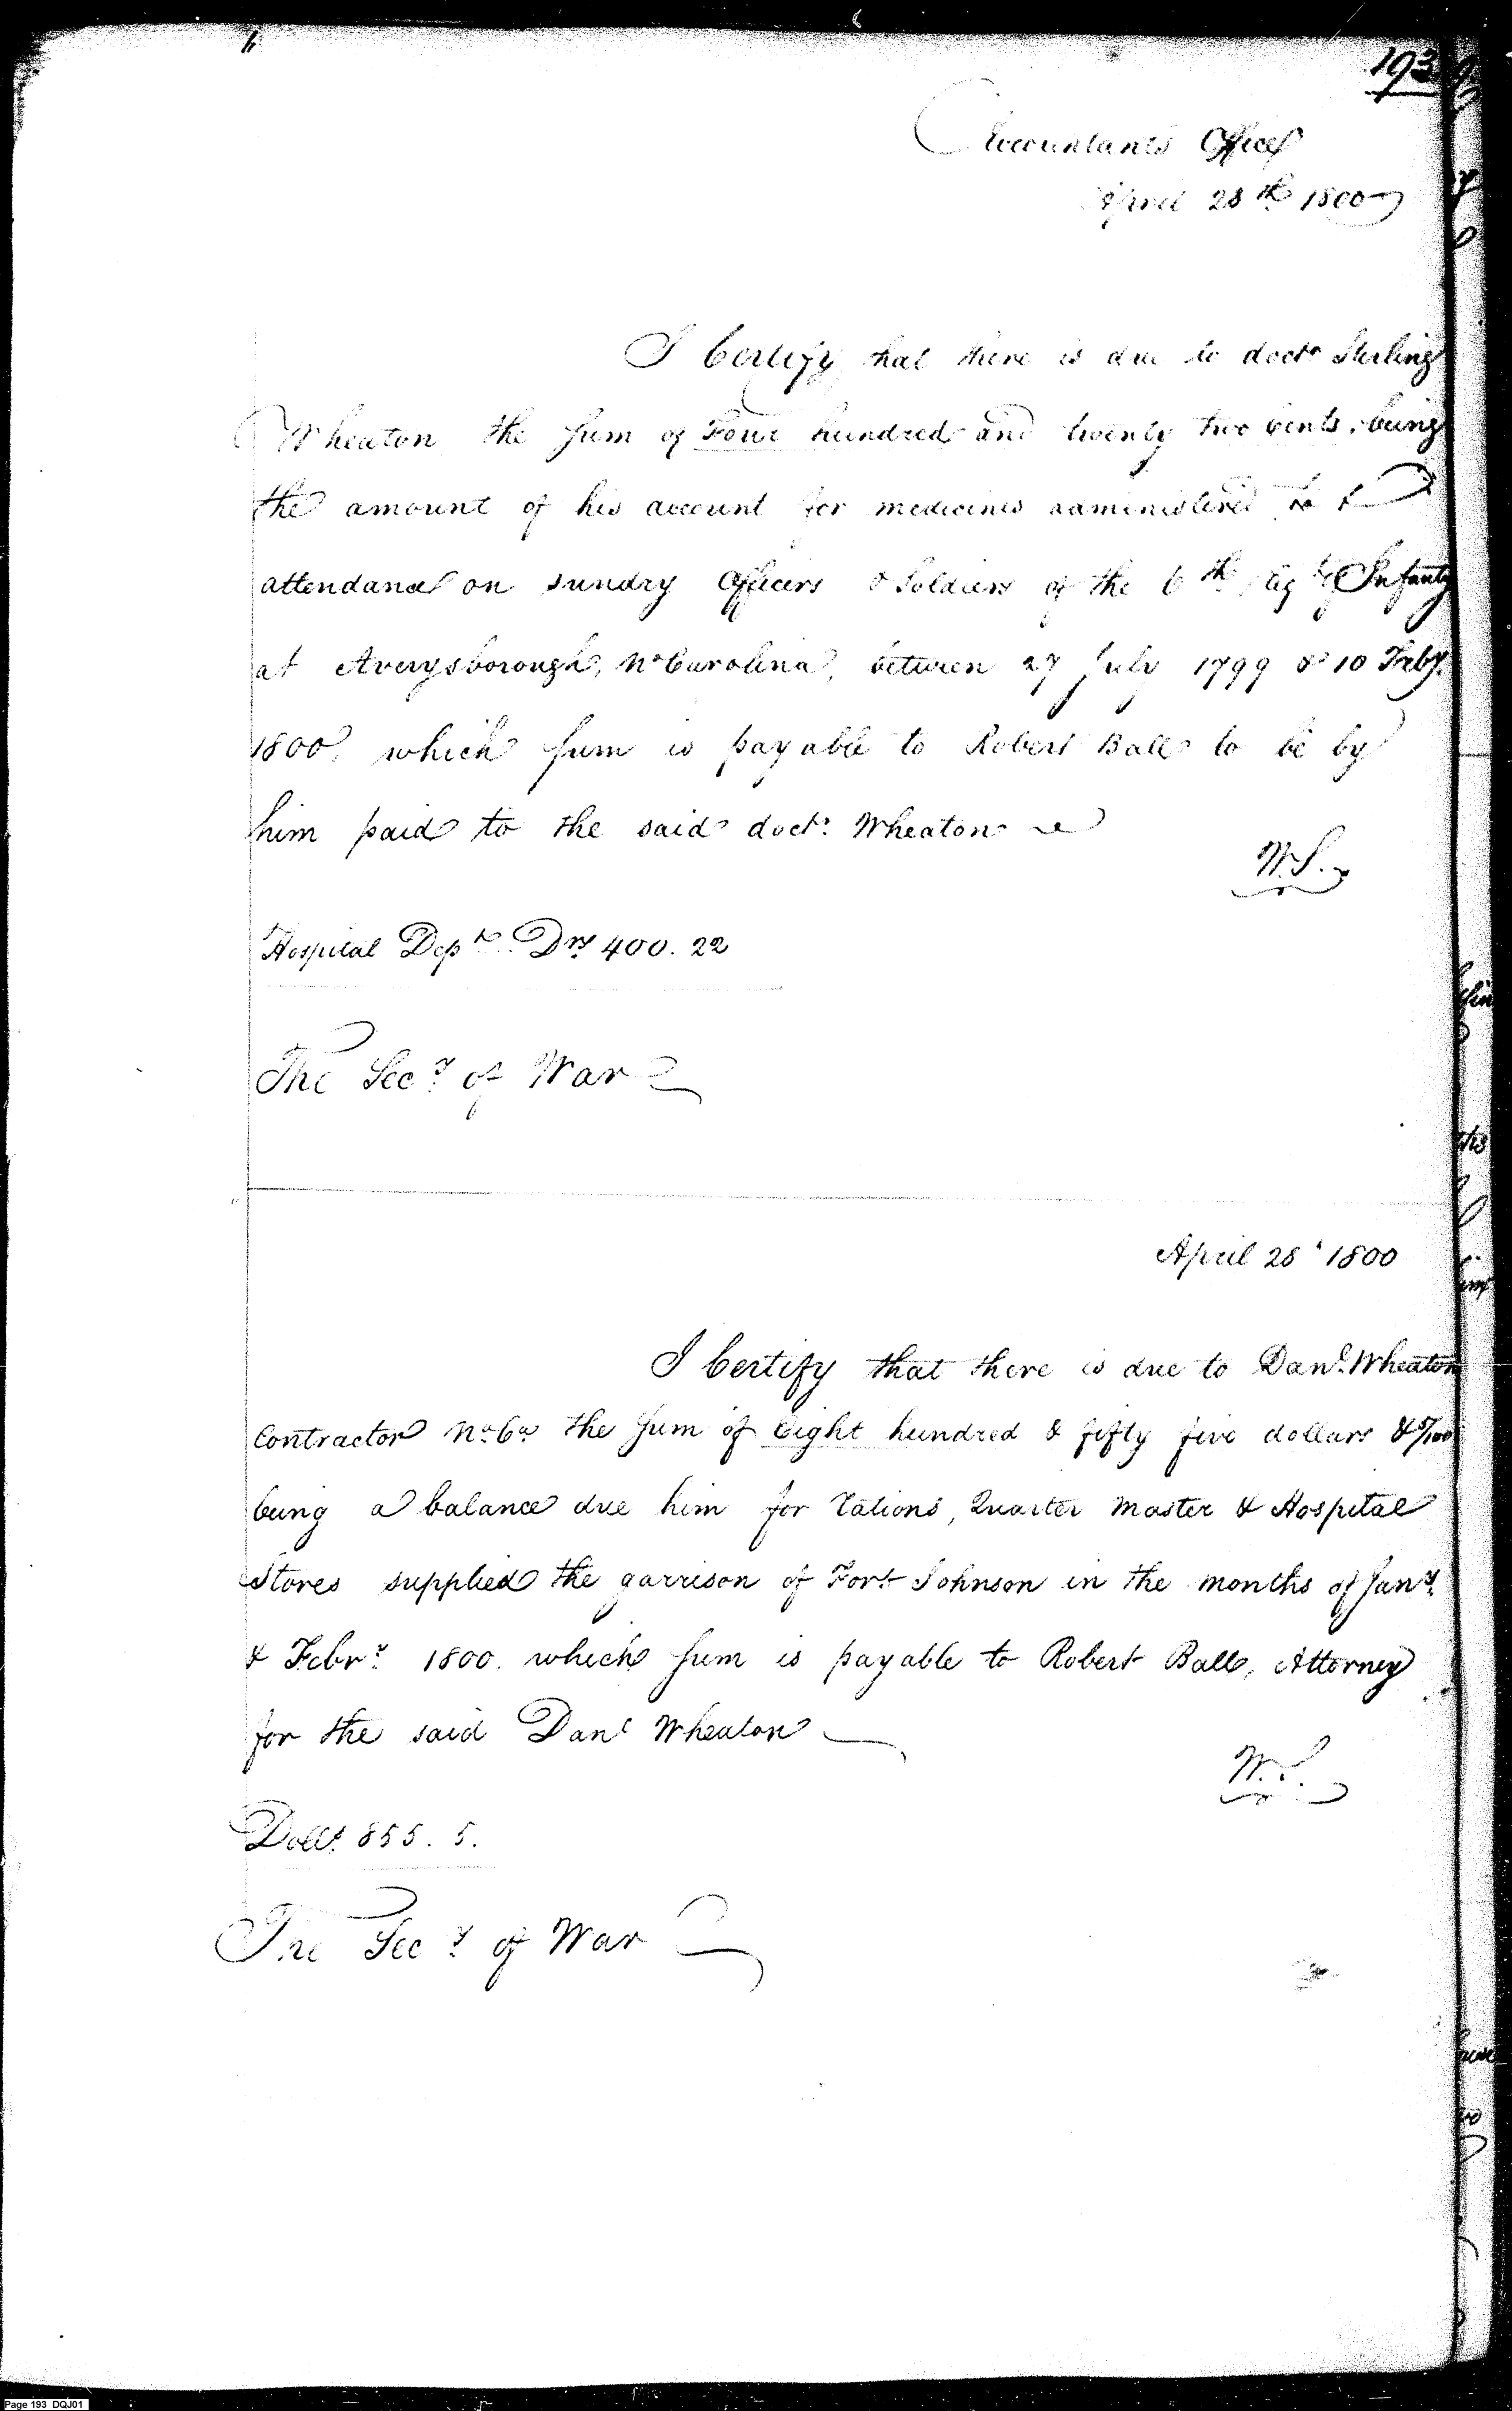 193
Accountants Office
April 28th 1800
I Certify that there is due to doctr Sterling
Wheaton the sum of Four hundred and twenty two cents, being
the amount of his account for medicines administered to &
attendance on sundry Officers & Soldiers of the 6th Regt Infanty
at Averysborough, No Carolina, between 27 July 1799 & 10 Feby.
1800, which sum is payable to Robert Ball to be by
him paid to the said doctr. Wheaton
W.S.
Hospital Dept. Drs 400.22
The Secy of War
April 28 1800
I Certify that there is due to Danl. Wheaton
Contractor No Ca the sum of Eight hundred & fifty five dollars & 5/100
being a balance due him for rations, Quarter Master & Hospital
Stores supplied the garrison of Fort Johnson in the months of Jany.
& Febry. 1800. which sum is payable to Robert Ball, Attorney
for the said Danl Wheaton
W.S.
Dolls. 855.5.
The Secy of War
Page 193 DQJ01